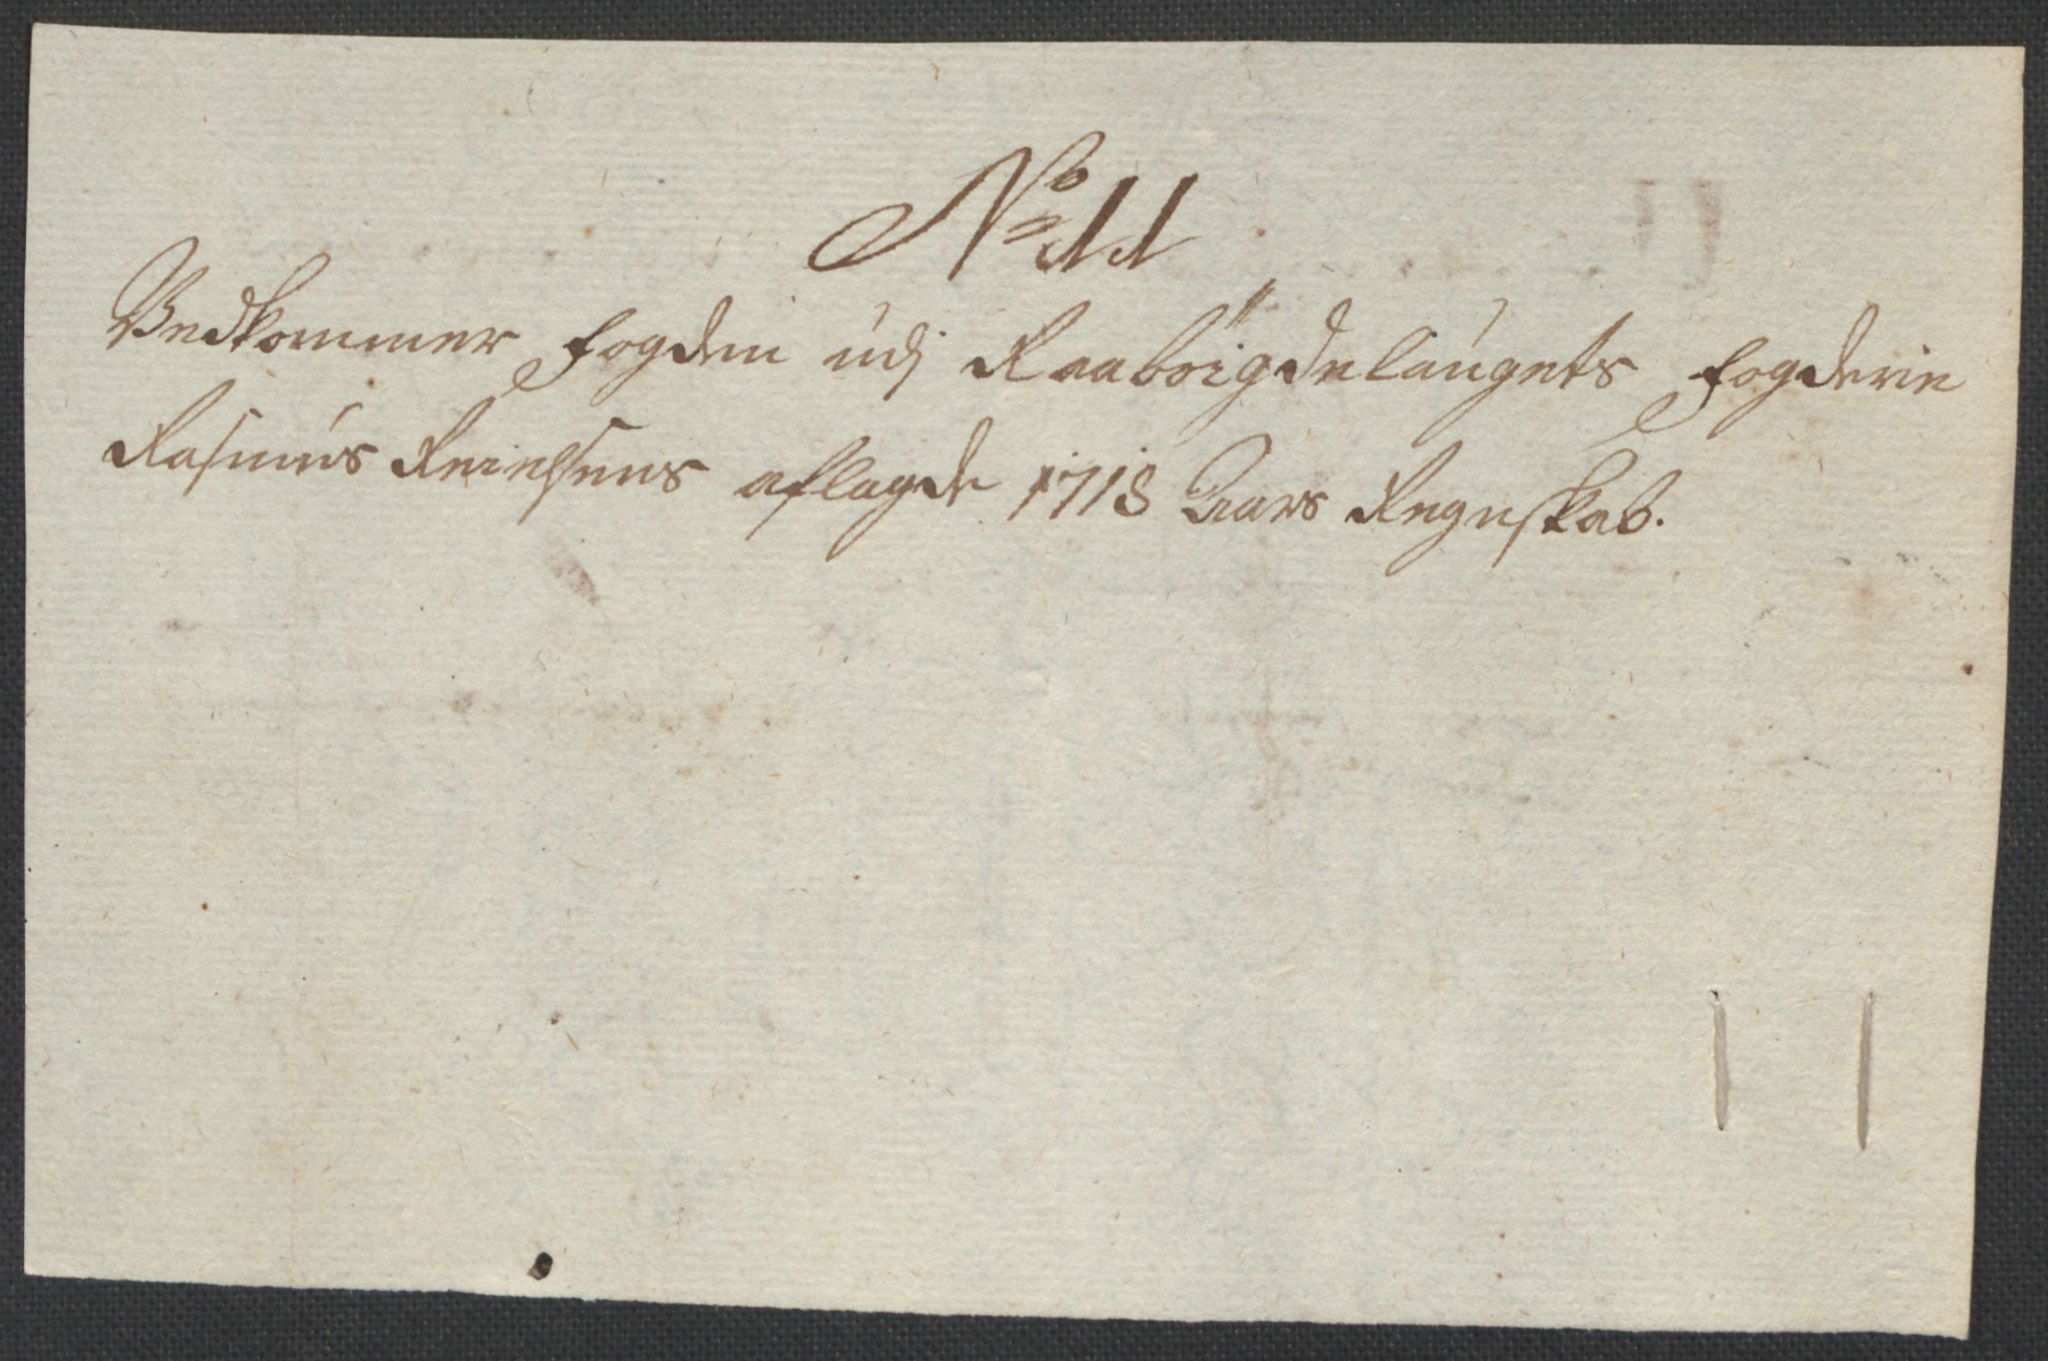 No 11
Vedkommer fogden udj Raaboigdelaugets fogderie
Rasmus aflagde 1718 Aars Regnskab.